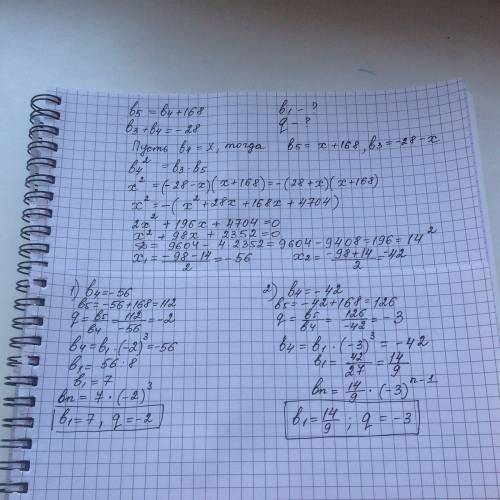 b₅ = b₄ + 168     b₁ - ?
b₃ + b₄ = -28     q - ?
Пусть b₄ = x, тогда b₅ = x + 168, b₃ = -28 - x
b₄² = b₃ · b₅
x² = (-28 - x)(x + 168) = -(28 + x)(x + 168)
x² = -(x² + 28x + 168x + 4704)
2x² + 196x + 4704 = 0
x² + 98x + 2352 = 0
D = 9604 - 4 · 2352 = 9604 - 9408 = 196 = 14²
x₁ = (-98 - 14)/2 = -56     x₂ = (-98 + 14)/2 = -42
1) b₄ = -56
b₅ = -56 + 168 = 112
q = b₅/b₄ = 112/-56 = -2
b₄ = b₁ · (-2)³ = -56
b₁ = 56 : 8
b₁ = 7
bn = 7 · (-2)³
b₁ = 7, q = -2
2) b₄ = -42
b₅ = -42 + 168 = 126
q = b₅/b₄ = 126/-42 = -3
b₄ = b₁ · (-3)³ = -42
b₁ = 42/27 = 14/9
bn = 14/9 · (-3)ⁿ⁻¹
b₁ = 14/9 ; q = -3